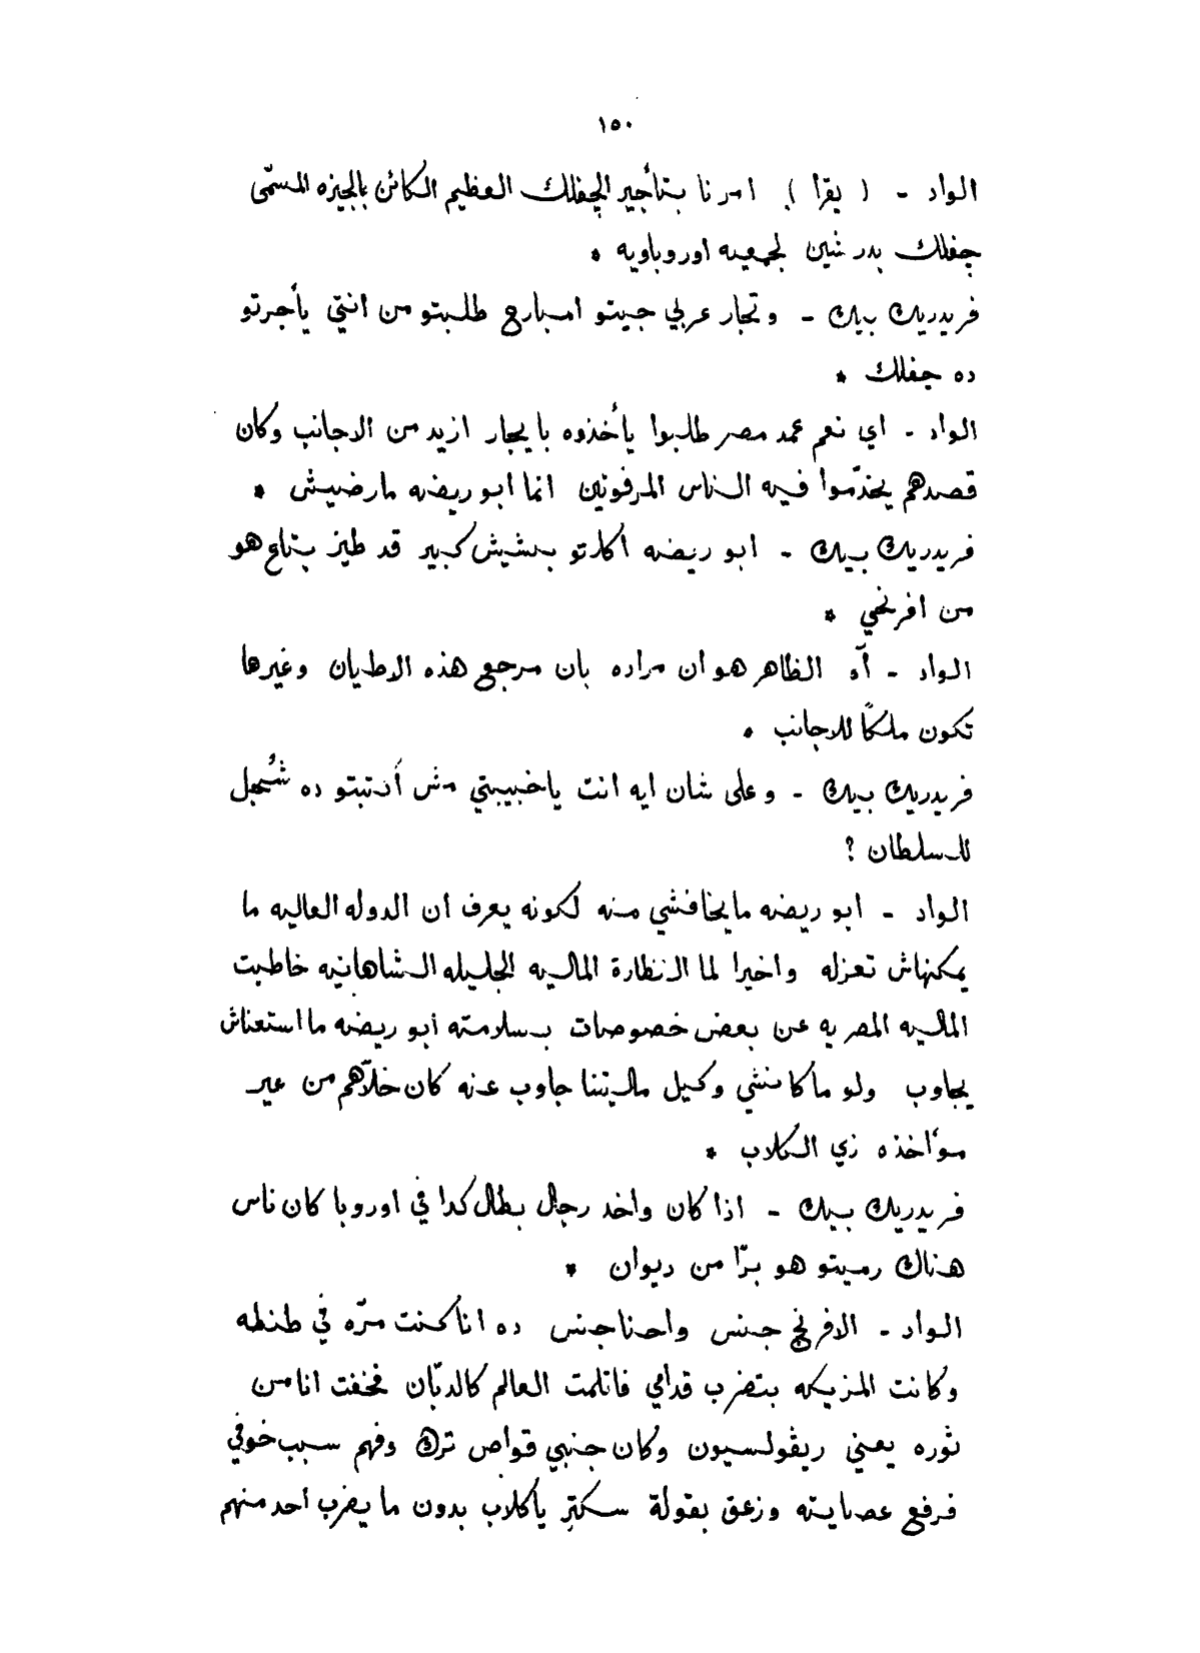 ١٥٠
الواد - ( يقرا ) امرنا بتأجير الچفلك العظيم الكائن بالجيزه المسمّى
چفلك بدرشين لجمعيه اوروباويه *
فريدريك بيك - وتجار عربي جيتو امبارح طلبتو من انتي يأجرتو
ده چفلك *
الواد - اي نعم عمد مصر طلبوا يأخذوه بايجار ازيد من الاجانب وكان
قصدهم يخدّموا فيه الناس المرفوتين انما ابو ريضه مارضيش *
فريدريك بيك - ابو ريضه اكلتو بخشيش كبير قد طيز بتاع هو
من افرنجي *
الواد - آو الظاهر هو ان مراده بان مرجع هذه الاطيان وغيرها
تكون ملكًا للاجانب *
فريدريك بيك - وعلى شان ايه انت ياخبيبتي مش أكتبتو ده شُغل
للسلطان ?
الواد - ابو ريضه مايخافشي منه لكونه يعرف ان الدوله العاليه ما
يمكنهاش تعزله واخيرا لما النظارة الماليه الجليله الشاهانيه خاطبت
الماليه المصريه عن بعض خصوصات بسلامته ابو ريضه ما استعناش
يجاوب ولو ماكانشي وكيل ماليتنا جاوب عنه كان خلّاهم من غير
مؤاخذه زي الكلاب *
فريدريك بيك - اذا كان واخد رجال بطال كدا في اوروبا كان ناس
هناك رميتو هو برّا من ديوان *
الواد - الافرنج جنس واحنا جنس ده انا كنت مرّه في طنطه
وكانت المزيكه بتضرب قدامي فاتلمت العالم كالدبّان فخفت انا من
ثوره يعني ريڤولسيون وكان جنبي قواص ترك وفهم سبب خوفي
فرفع عصايته وزعق بقولة سكتر ياكلاب بدون ما يضرب أحد منهم